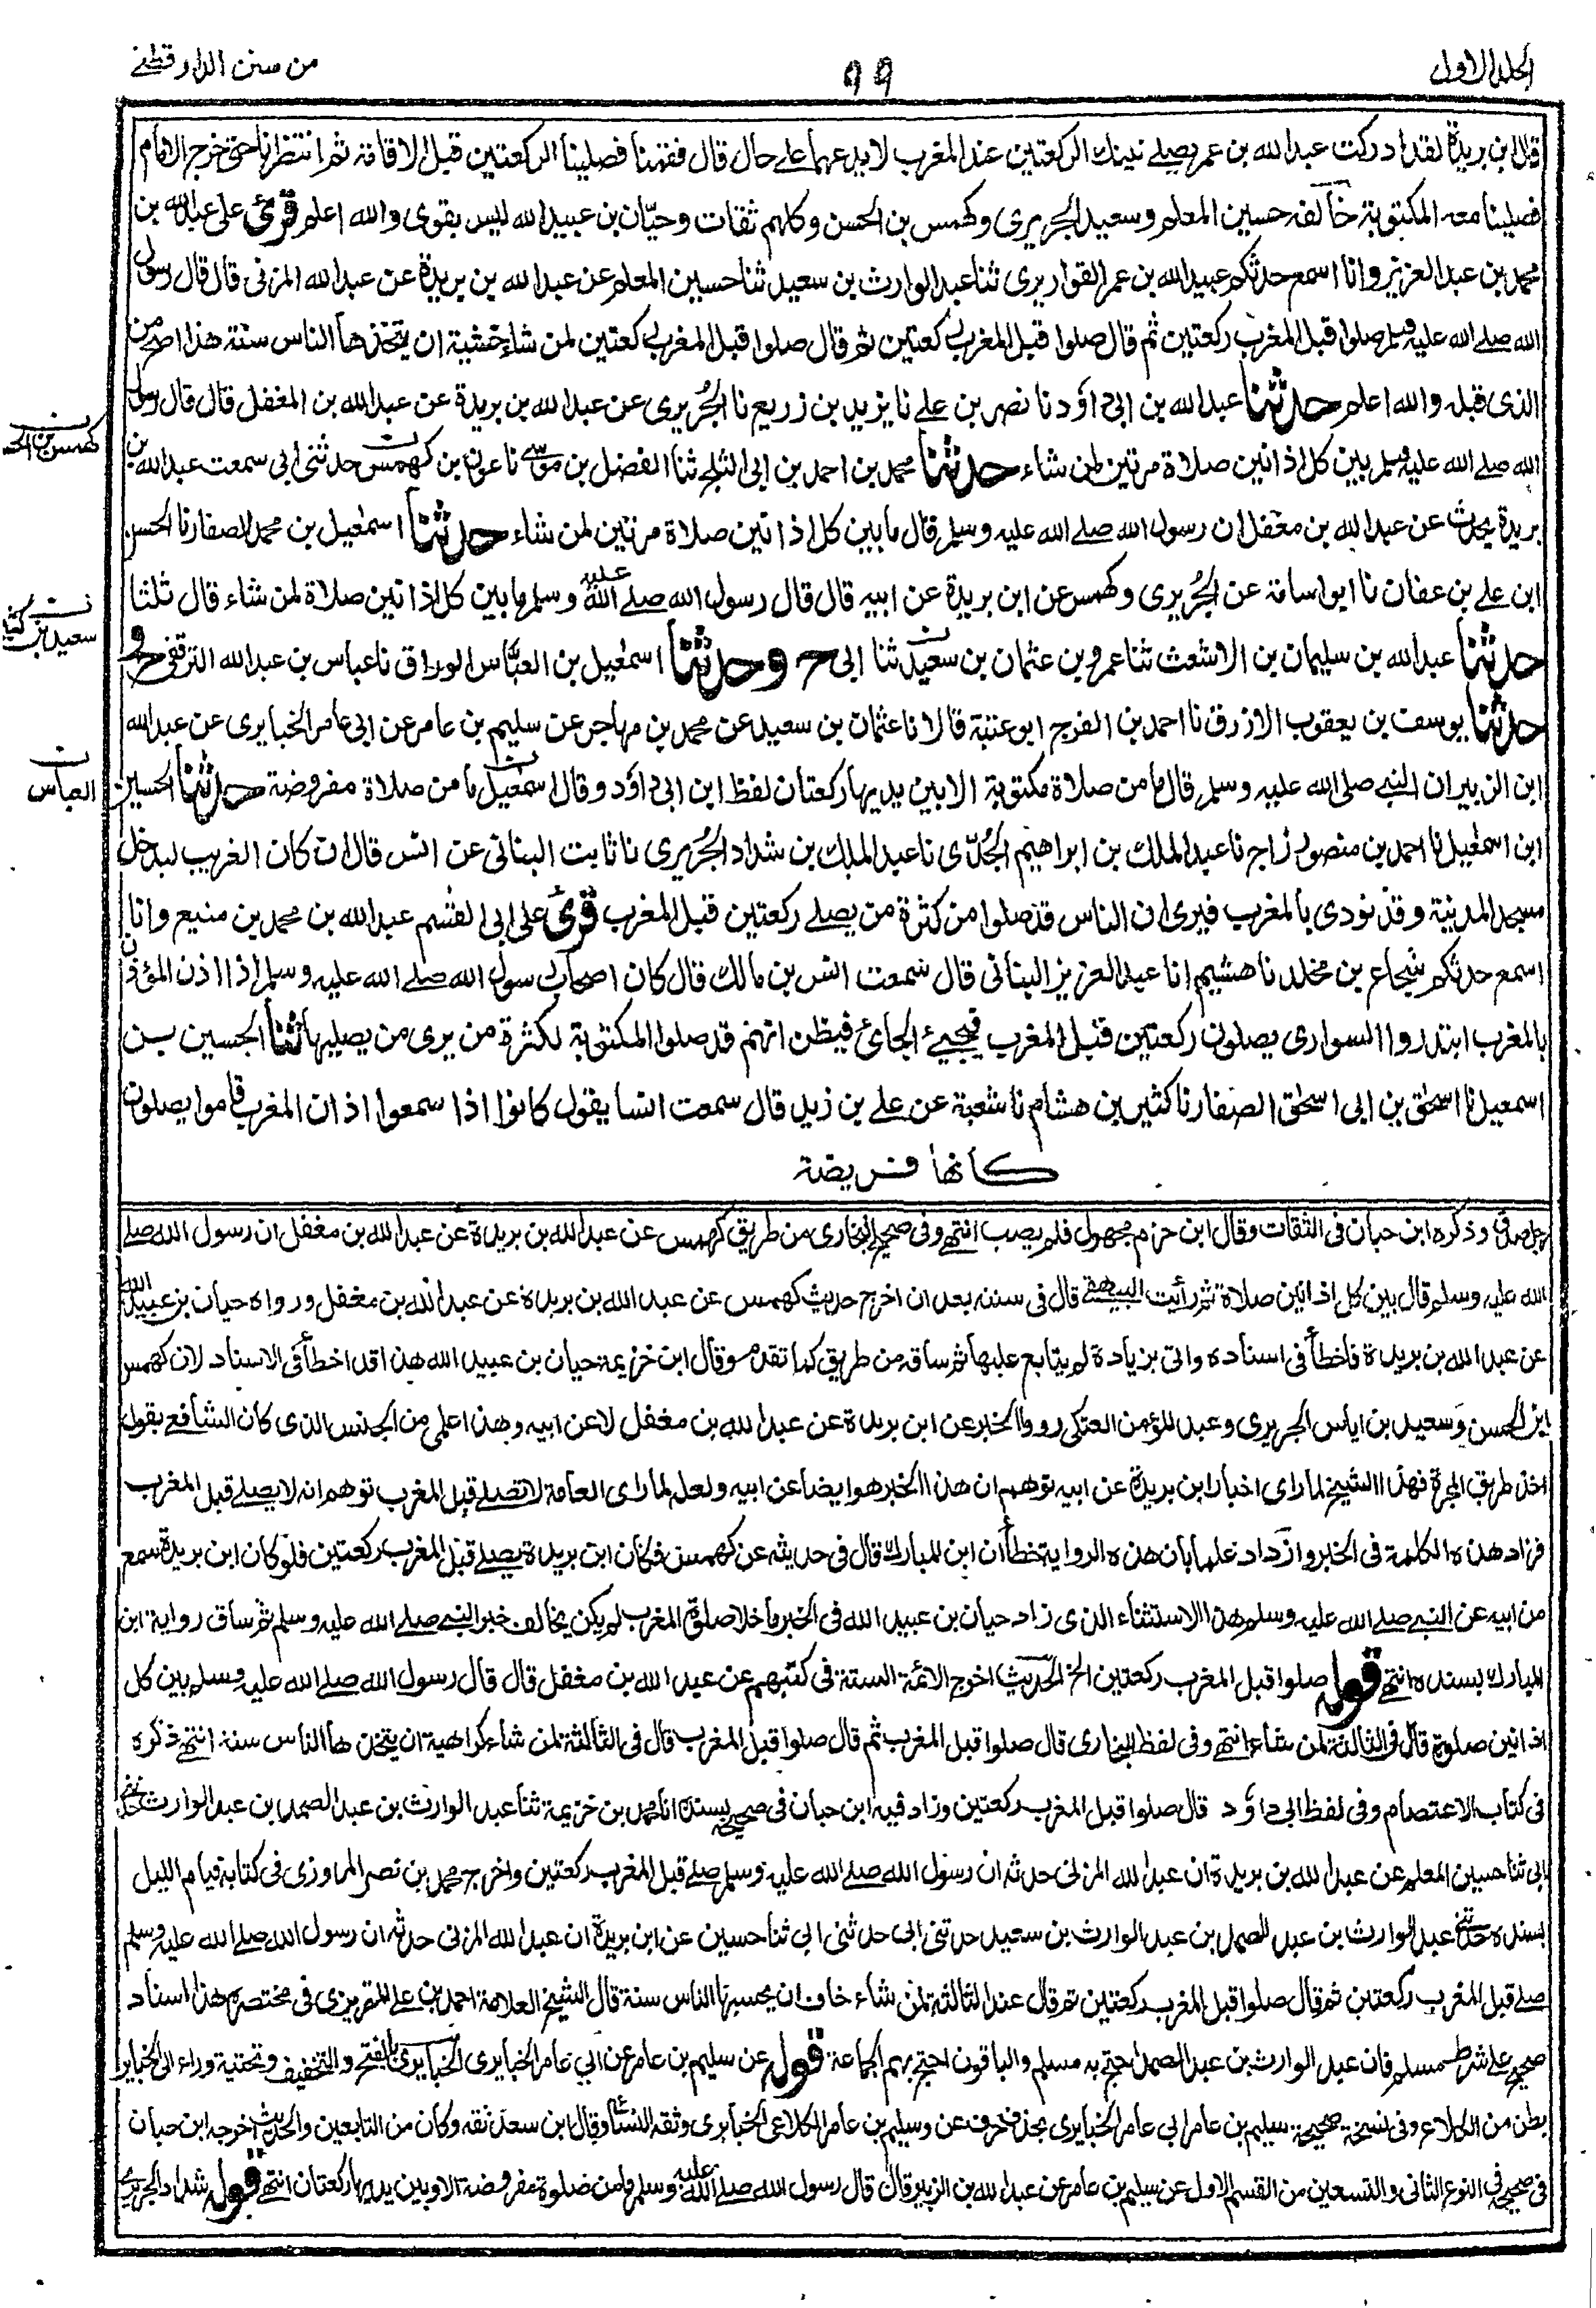 الجلد الاول
٩٩
من سنن الدارقطنے
قال ابن بريدة لقد ادركت عبدالله بن عمر يصلے تينك الركعتين عند المغرب لا يدعهما علے حال قال فقمنا فصلينا الركعتين قبل الاقامة ثم انتظرنا حتى خرج الامام
فصلينا معه المكتوبة خالفه حسين المعلم وسعيد الجريرى وكهمس بن الحسن وكلهم ثقات وحيّان بن عبيد الله ليس بقوى والله اعلم قرئ على عبدالله بن
محمد بن عبد العزيز وانا اسمع حدثكم عبيد الله بن عمر القواريرى ثنا عبد الوارث بن سعيد ثنا حسين المعلم عن عبد الله بن بريدة عن عبد الله المزنى قال قال رسول
الله صلے الله عليه وسلم صلوا قبل المغرب ركعتين ثم قال صلوا قبل المغرب ركعتين ثم قال صلوا قبل المغرب ركعتين لمن شاء خشية ان يتخذها الناس سنة هذا اصح من
الذى قبله والله اعلم حدثنا عبد الله بن ابى داؤد نا نصر بن علے نا يزيد بن زريع نا الجُريرى عن عبد الله بن بريدة عن عبد الله بن المغفل قال قال رسول
الله صلے الله عليه وسلم بين كل اذانين صلاة مرتين لمن شاء حدثنا محمد بن احمد بن ابى الثلج ثنا الفضل بن موسى نا عون بن كهمس حدثنى ابى سمعت عبد الله بن
بريدة يحدث عن عبد الله بن مغفل ان رسول الله صلے الله عليه وسلم قال ما بين كل اذانين صلاة مرتين لمن شاء حدثنا اسمعيل بن محمد الصفار نا الحسن
ابن علے بن عفان نا ابو اسامة عن الجُريرى وكهمس عن ابن بريدة عن ابيه قال قال رسول الله صلے الله عليه وسلم ما بين كل اذانين صلاة لمن شاء قال ثلثا
حدثنا عبد الله بن سليمان بن الاشعث ثنا عمرو بن عثمان بن سعيد ثنا ابى ح وحدثنا اسمعيل بن العبّاس الوراق نا عباس بن عبد الله الترقفى ح و
حدثنا يوسف بن يعقوب الازرق نا احمد بن الفرج ابو عتبة قالا نا عثمان بن سعيد عن محمد بن مهاجر عن سليم بن عامر عن ابى عامر الخبايرى عن عبد الله
ابن الزبير ان النبے صلى الله عليه وسلم قال ما من صلاة مكتوبة الا بين يديها ركعتان لفظ ابن ابى داؤد وقال اسمعيل ما من صلاة مفروضة حدثنا الحسين
ابن اسمعيل نا احمد بن منصور زاج نا عبد الملك بن ابراهيم الجُدّى نا عبد الملك بن شداد الجُريرى نا ثابت البنانى عن انس قال ان كان الغريب ليدخل
مسجد المدينة وقد نودى بالمغرب فيرى ان الناس قد صلوا من كثرة من يصلے ركعتين قبل المغرب قرئ على ابى القسم عبد الله بن محمد بن منيع وانا
اسمع حدثكم شجاع بن مخلد نا هشيم انا عبد العزيز البنانى قال سمعت انس بن مالك قال كان اصحاب رسول الله صلے الله عليه وسلم اذا اذن المؤذن
بالمغرب ابتدروا السوارى يصلون ركعتين قبل المغرب فيجيئ الجائ فيظن انهم قد صلوا المكتوبة لكثرة من يرى من يصليها ثنا الحسين بن
اسمعيل نا اسحق بن ابى اسحق الصفار نا كثير بن هشام نا شعبة عن علے بن زيد قال سمعت انسا يقول كانوا اذا سمعوا اذان المغرب قاموا يصلون
كانها فريضة
كهمس بن الحسن
سعيد بن كثير
العباس
رجل صدوق وذكره ابن حبان فى الثقات وقال ابن حزم مجهول فلم يصب انتهے وفى صحيح البخارى من طريق كهمس عن عبد الله بن بريدة عن عبد الله بن مغفل ان رسول الله صلے
الله عليه وسلم قال بين كل اذانين صلاة ثم رأيت البيهقے قال فى سننه بعد ان اخرج حديث كهمس عن عبد الله بن بريدة عن عبد الله بن مغفل ورواه حيان بن عبيد الله
عن عبد الله بن بريدة فاخطأ فى اسناده واتى بزيادة لم يتابع عليها ثم ساقه من طريق كما تقدم وقال ابن خزيمة حيان بن عبيد الله هذا قد اخطأ فى الاسناد لان كهمس
ابن الحسن وسعيد بن اياس الجريرى وعبد المؤمن العتكى رووا الخبر عن ابن بريدة عن عبد الله بن مغفل لا عن ابيه وهذا علمى من الجنس الذى كان الشافعے يقول
اخذ طريق المجرة فهذا الشيخ لما راى اخبار ابن بريدة عن ابيه توهم ان هذا الخبر هو ايضا عن ابيه ولعله لما راى العامة لا تصلے قبل المغرب توهم انه لا يصلے قبل المغرب
فزاد هذه الكلمة فى الخبر وازداد علما بان هذه الرواية خطأ ان ابن المبارك قال فى حديثه عن كهمس فكان ابن بريدة يصلے قبل المغرب ركعتين فلو كان ابن بريدة سمع
من ابيه عن النبے صلے الله عليه وسلم هذا الاستثناء الذى زاد حيان بن عبيد الله فى الخبر ما خلا صلوة المغرب لم يكن يخالف خبر النبے صلے الله عليه وسلم ثم ساق رواية ابن
المبارك بسنده انتهے قوله صلوا قبل المغرب ركعتين الخ الحديث اخرج الائمة الستة فى كتبهم عن عبد الله بن مغفل قال قال رسول الله صلے الله عليه وسلم بين كل
اذانين صلوة قال فى الثالثة لمن شاء انتهے وفى لفظ البخارى قال صلوا قبل المغرب ثم قال صلوا قبل المغرب قال فى الثالثة لمن شاء كراهية ان يتخذها الناس سنة انتهے ذكره
فى كتاب الاعتصام وفى لفظ ابى داؤد قال صلوا قبل المغرب ركعتين وزاد فيه ابن حبان فى صحيحه بسنده انا محمد بن خزيمة ثنا عبد الوارث بن عبد الصمد بن عبد الوارث حدثنى
ابى ثنا حسين المعلم عن عبد الله بن بريدة ان عبد الله المزنى حدثه ان رسول الله صلے الله عليه وسلم صلے قبل المغرب ركعتين واخرج محمد بن نصر المروزى فى كتابه قيام الليل
بسنده حدثنے عبد الوارث بن عبد الصمد بن عبد الوارث بن سعيد حدثنى ابى حدثنى ابى ثنا حسين عن ابن بريدة ان عبد الله المزنى حدثه ان رسول الله صلے الله عليه وسلم
صلے قبل المغرب ركعتين ثم قال صلوا قبل المغرب ركعتين ثم قال عند الثالثة لمن شاء خاف ان يحسبها الناس سنة قال الشيخ العلامة احمد بن علے المقريزى فى مختصره هذا اسناد
صحيح علے شرط مسلم فان عبد الوارث بن عبد الصمد احتج به مسلم والباقون احتج بهم الجماعة قوله عن سليم بن عامر عن ابي عامر الخبايرى الخبايرى بالفتح والتخفيف وتحتية وراء الى الخباير
بطن من الكلاع وفى نسخة صحيحة سليم بن عامر ابي عامر الخبايرى بحذف حرف عن وسليم بن عامر الكلاعى الخبايرى وثقه النسائى وقال ابن سعد ثقه وكان من التابعين والحديث اخرجه ابن حبان
فى صحيحه فى النوع الثانى والتسعين من القسم الاول عن سليم بن عامر عن عبد الله بن الزبير قال قال رسول الله صلے الله عليه وسلم ما من صلوة مفروضة الا وبين يديها ركعتان انتهے قوله شداد الجريرى